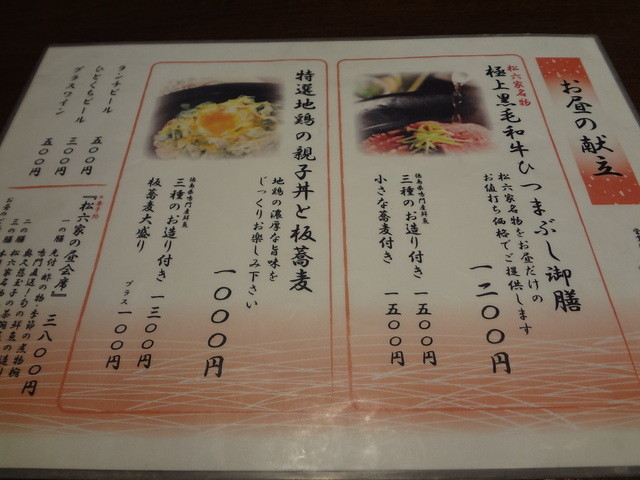 お昼の献立
松六家名物
極上黒毛和牛ひつまぶし御膳
松六家名物をお昼だけの
お値打ち価格でご提供します
一二〇〇円
徳島県鳴門産鮮魚
三種のお造り付き 一五〇〇円
小さな蕎麦付き 一五〇〇円
特選地鶏の親子丼と板蕎麦
地鶏の濃厚な旨味を
じっくりお楽しみ下さい
一〇〇〇円
徳島県鳴門産鮮魚
三種のお造り付き 一三〇〇円
板蕎麦大盛り プラス一〇〇円
ランチビール 五〇〇円
ひとくちビール 三〇〇円
グラスワイン 五〇〇円
『松六家の昼会席』 三八〇〇円
一の膳 先付・郷の物・季節の煮物椀
二の膳 鳴門直送!旬の鮮魚の造り
三の膳